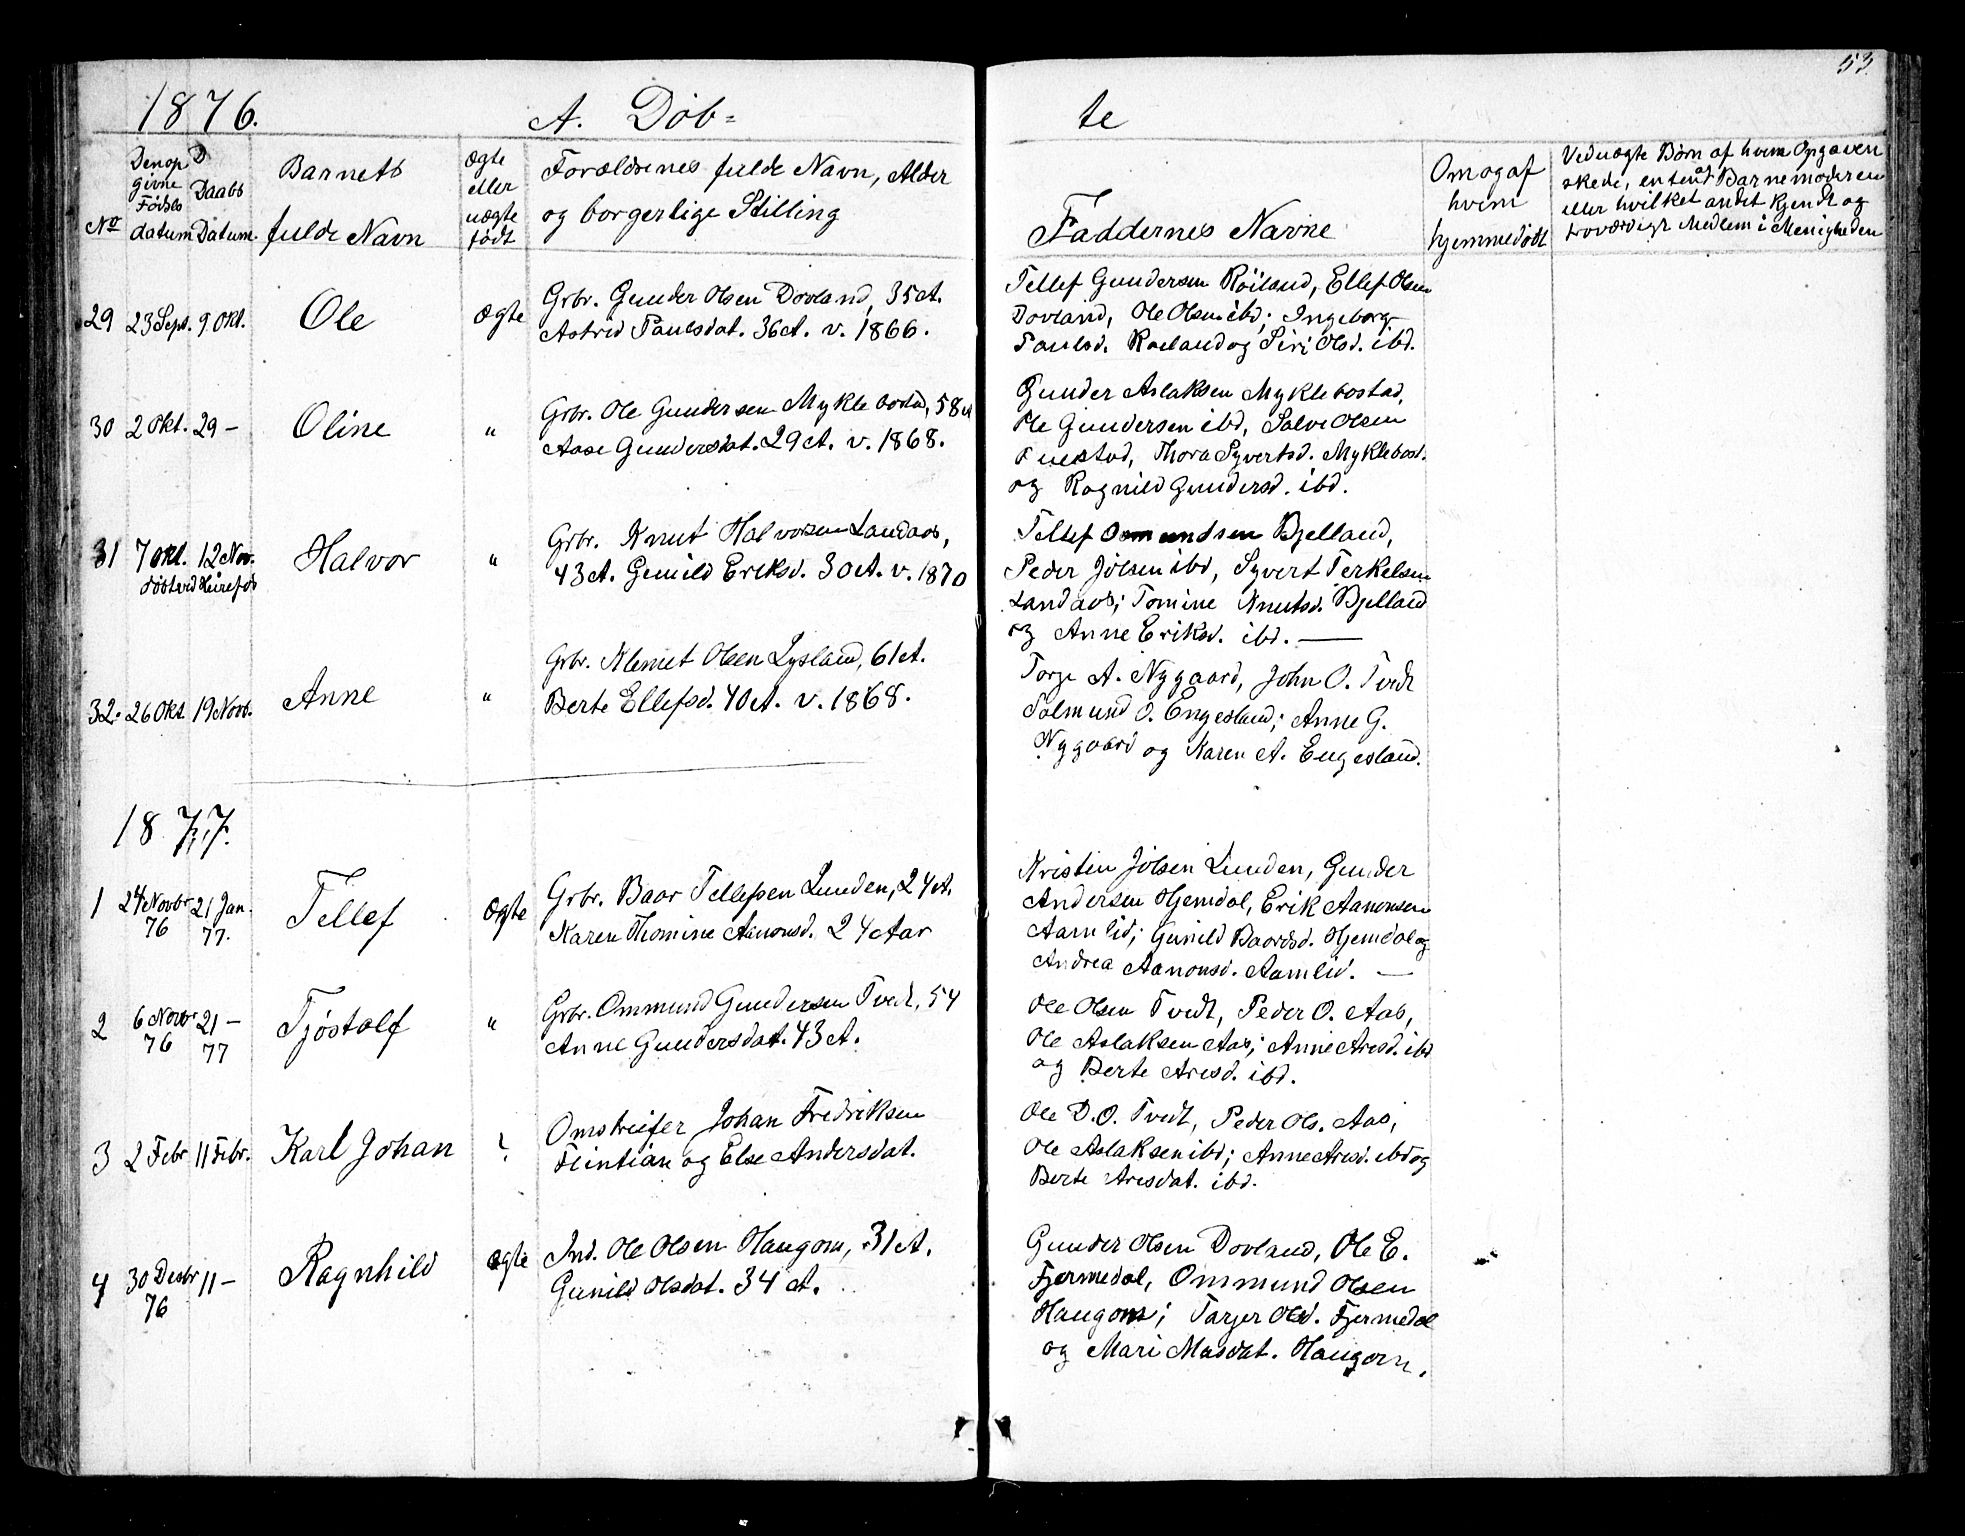 53.
1876. A. Døb-
te
No
Den op
givne
Fødsels
datum
D
Daabs
Datum.
Barnets
fulde Navn
Ægte
eller
uægte
født
Forældrenes fulde Navn, Alder
og borgerlige Stilling
Faddernes Navne
Om og af
hvem
hjemmedøbt
Ved uægte Børn af hvem Opgaven
skede, entend Barnemoderen
eller hvilket andet kjendt og
troværdigt Medlem i Menigheden
29 23 Sept. 9 Okt. Ole Ægte
Grbr. Gunder Olsen Dovland, 35 A.
Astrid Paulsdat. 36 A. v. 1866.
Tellef Gundersen Röiland, Ellef Olsen
Dovland, Ole Olsen ibd; Ingeborg
Paulsd. Roeland og Siri Olsd. ibd.
30 2 Okt. 29 – Oline "
Grbr. Ole Gundersen Myklebostad, 58 A
Aase Gundersdat. 29 A. v. 1868.
Gunder Aslaksen Myklebostad,
Ole Gundersen ibd, Salve Olsen
Thora Syvertsd. Myklebost.
og Ragnild Gundersd. ibd.
31 7 Okt. 12 Nov. Halvor "
Grbr. Knut Halvorsen Landaas,
43 A. Gunild Eriksd. 30 A. v. 1870
Tellef Osmundsen Bjelland,
Peder Jölsen ibd, Syvert Terkelsen
Landaas; Tomine Knutsd. Bjelland
og Anne Eriksd. ibd. —
32. 26 Okt. 19 Novb. Anne "
Grbr. Klemet Olsen Lysland, 61 A.
Berte Ellefsd. 40 A. v. 1868.
Torje A. Nygaard, John O. Tvedt
Salmund O. Engesland; Anne G.
Nygaard og Karen A. Engesland.
1877.
1 24 Novbr 21 Jan. Tellef Ægte
76 77.
Grbr. Baar Tellefsen Lunden, 24 A.
Karen Thomine Aanonsd. 24 Aar
Kristen Jölsen Lunden, Gunder
Andersen Hjemdal, Erik Aanonsen
Aamlid; Gunild Baardsd. Hjemdal og
Andrea Aanonsd. Aamlid. —
2 6 Novbr 21 – Tjöstolf "
76 77
Grbr. Ommund Gundersen Tvedt, 54
Anne Gundersdat. 43 A.
Ole Olsen Tvedt, Peder O. Aas,
Ole Aslaksen Aas; Anne Aresd. ibd
og Berte Aresd. ibd.
3 2 Febr 11 Febr. Karl Johan ?
Omstreifer Johan Fredriksen
Flintian og Else Andersdat.
Ole D. O. Tvedt, Peder Ols. Aas,
Ole Aslaksen ibd; Anne Aresd. ibd og
Berte Aresdat. ibd.
4 30 Desbr 11 – Ragnhild Ægte
76
Ind. Ole Olsen Haugom, 31 A.
Gunild Olsdat. 34 A.
Gunder Olsen Dovland, Ole E.
Fjermedal, Ommund Olsen
Haugom; Tarjer Olsd. Fjermedal
og Mari Masdat. Haugom.